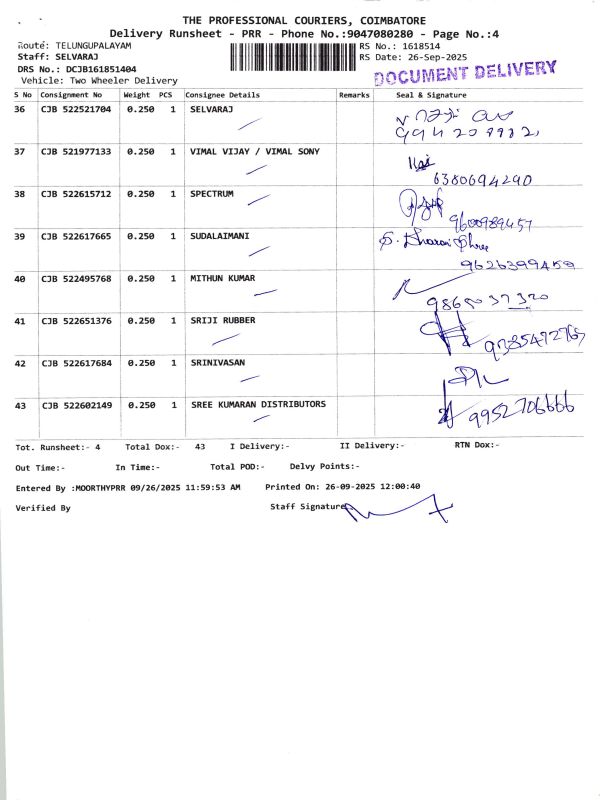 THE PROFESSIONAL COURIERS, COIMBATORE
Delivery Runsheet - PRR - Phone No.:9047080280 - Page No.:4
Route: TELUNGUPALAYAM
RS No.: 1618514
Staff: SELVARAJ
RS Date: 26-Sep-2025
DRS No.: DCJB161851404
DOCUMENT DELIVERY
Vehicle: Two Wheeler Delivery
S No Consignment No Weight PCS Consignee Details Remarks Seal & Signature
36 CJB 522521704 0.250 1 SELVARAJ
37 CJB 521977133 0.250 1 VIMAL VIJAY / VIMAL SONY
6380694290
38 CJB 522615712 0.250 1 SPECTRUM
9600989457
39 CJB 522617665 0.250 1 SUDALAIMANI S. Dharani Shree
9626399459
40 CJB 522495768 0.250 1 MITHUN KUMAR
41 CJB 522651376 0.250 1 SRIJI RUBBER
42 CJB 522617684 0.250 1 SRINIVASAN
43 CJB 522602149 0.250 1 SREE KUMARAN DISTRIBUTORS
9952706666
Tot. Runsheet:- 4 Total Dox:- 43 I Delivery:- II Delivery:- RTN Dox:-
Out Time:- In Time:- Total POD:- Delvy Points:-
Entered By :MOORTHYPRR 09/26/2025 11:59:53 AM Printed On: 26-09-2025 12:00:40
Verified By Staff Signature